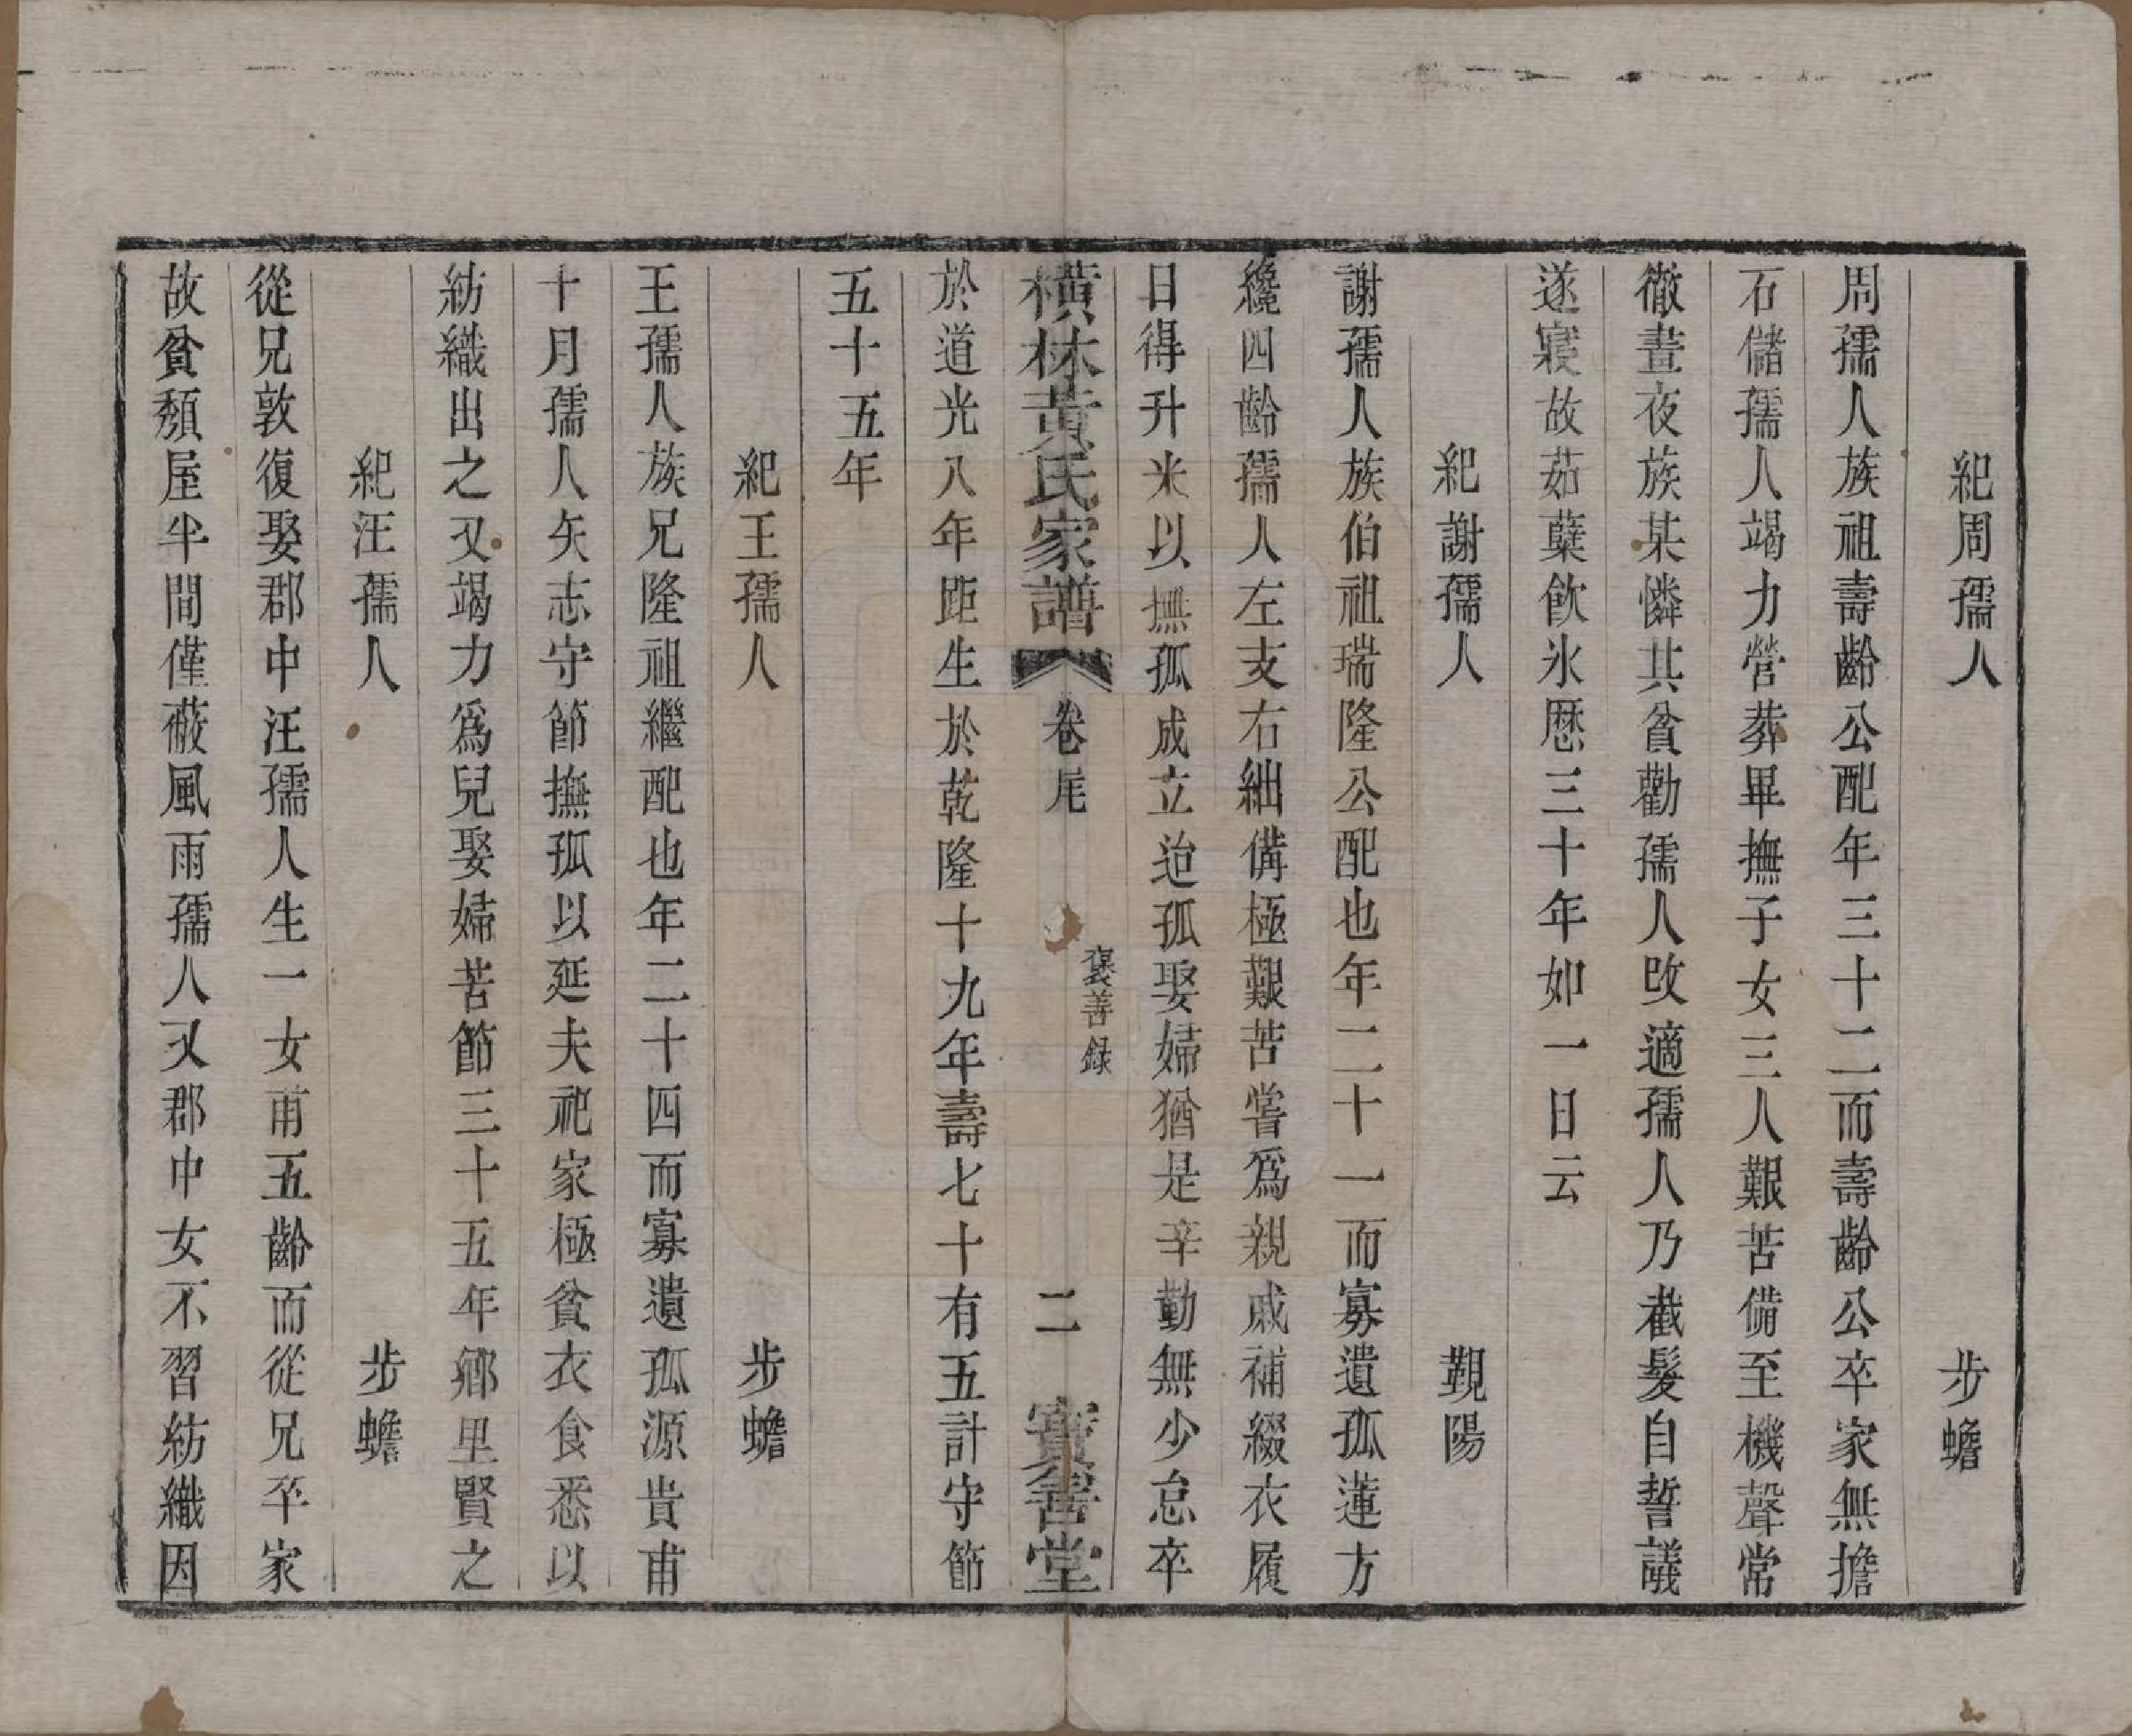 紀周孺人　步蟾
周孺人族祖壽齡公配年三十二而壽齡公卒家無擔
石儲孺人竭力營葬畢撫子女三人艱苦備至機聲常
徹晝夜族某憐其貧勸孺人改適孺人乃截髮自誓議
遂寢故茹蘖飲氷歷三十年如一日云
紀謝孺人　覲陽
謝孺人族伯祖瑞隆公配也年二十一而寡遺孤蓮方
纔四齡孺人左支右絀備極艱苦嘗爲親戚補綴衣履
日得升米以撫孤成立迨孤娶婦猶是辛勤無少怠卒
橫林黃氏家譜　卷尾　褒善録　二　寶善堂
於道光八年距生於乾隆十九年壽七十有五計守節
五十五年
紀王孺人　步蟾
王孺人族兄隆祖繼配也年二十四而寡遺孤源貴甫
十月孺人矢志守節撫孤以延夫祀家極貧衣食悉以
紡織出之又竭力爲兒娶婦苦節三十五年鄉里賢之
紀汪孺人　步蟾
從兄敦復娶郡中汪孺人生一女甫五齡而從兄卒家
故貧頹屋半間僅蔽風雨孺人又郡中女不習紡織因